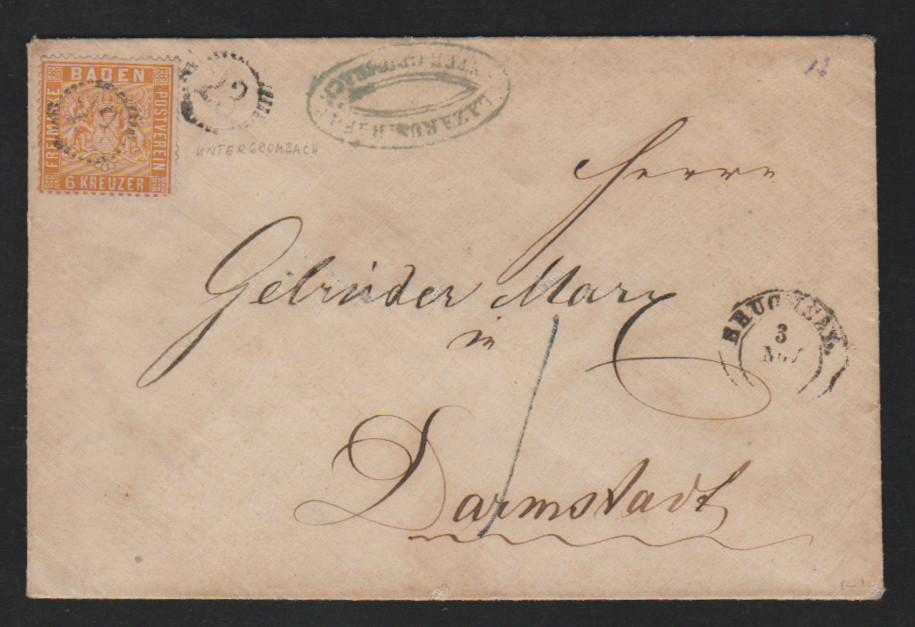 BADEN
FREIMARKE
POSTVEREIN
6 KREUZER
UNTERGROMBACH
LAZARUS
UNTERGROMBACH
12
Herrn
Gebrüder Marx
in
Darmstadt
BRUCHSAL
3
NOV
1